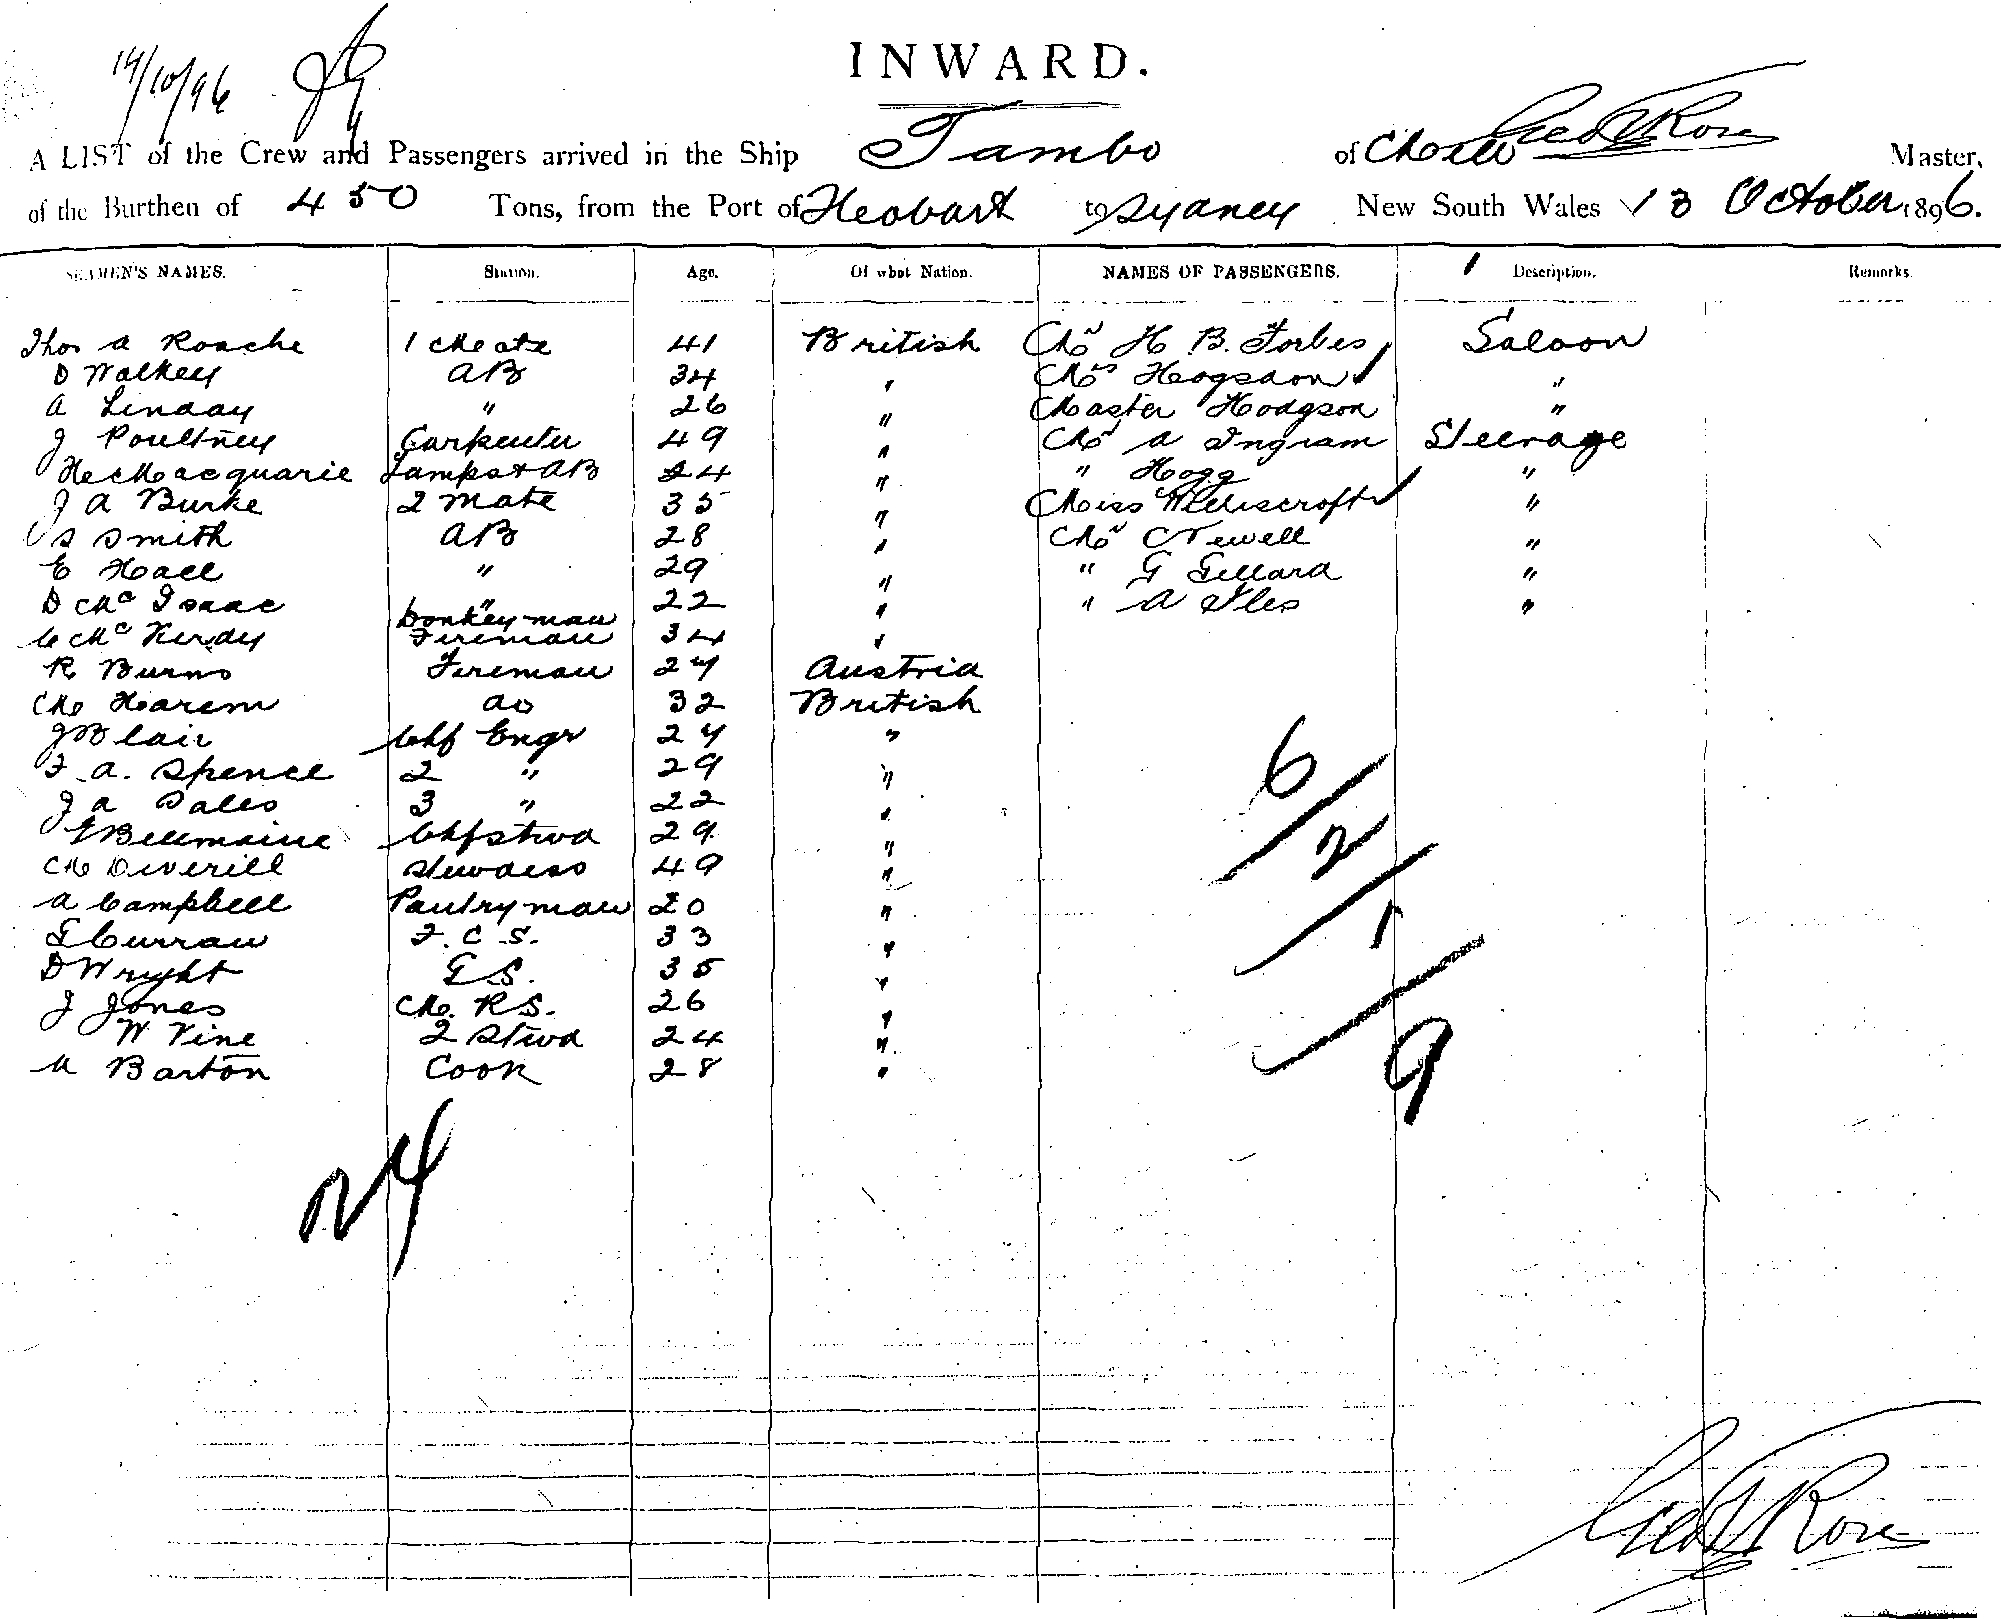 14/10/96
INWARD.
A LIST of the Crew and Passengers arrived in the Ship Tambo of Melb Geo S Rose Master,
of the Burthen of 450 Tons, from the Port of Hobart to Sydney New South Wales 13 October 1896.
SEAMEN'S NAMES. Station. Age. Of what Nation. NAMES OF PASSENGERS. Description. Remarks.
Thos A Roache 1 Mate 41 British Mr H B. Forbes Saloon
D Walkey AB 34 " Mrs Hogsdon "
A Linday " 26 " Master Hodgson "
J Poultney Carpenter 49 " Mr A Ingram Steerage
H Macquarie Lamps & AB 24 " " Hogg "
J A Burke 2 Mate 35 " Miss "
S Smith AB 28 " Mr Newell "
E Hall " 29 " " G Gellard "
D Mc Isaac " 22 " " A Iles "
C Mc Kerdy Donkeyman Fireman 34 "
R Burns Fireman 24 Austria
M Harem do 32 British
J Blair Chf Engr 24 "
F. A. Spence 2 " 29 "
J A Sales 3 " 22 "
E Bellmaine Chf Stwd 29 "
M Deverill Stewdess 49 "
A Campbell Pantryman 20 "
G Curran F. C. S. 33 "
D Wryght G S. 35 "
J Jones M. R S. 26 "
W Vine 2 Stwd 24 "
A Barton Cook 28 "
6
2
1
9
24
Geo S Rose